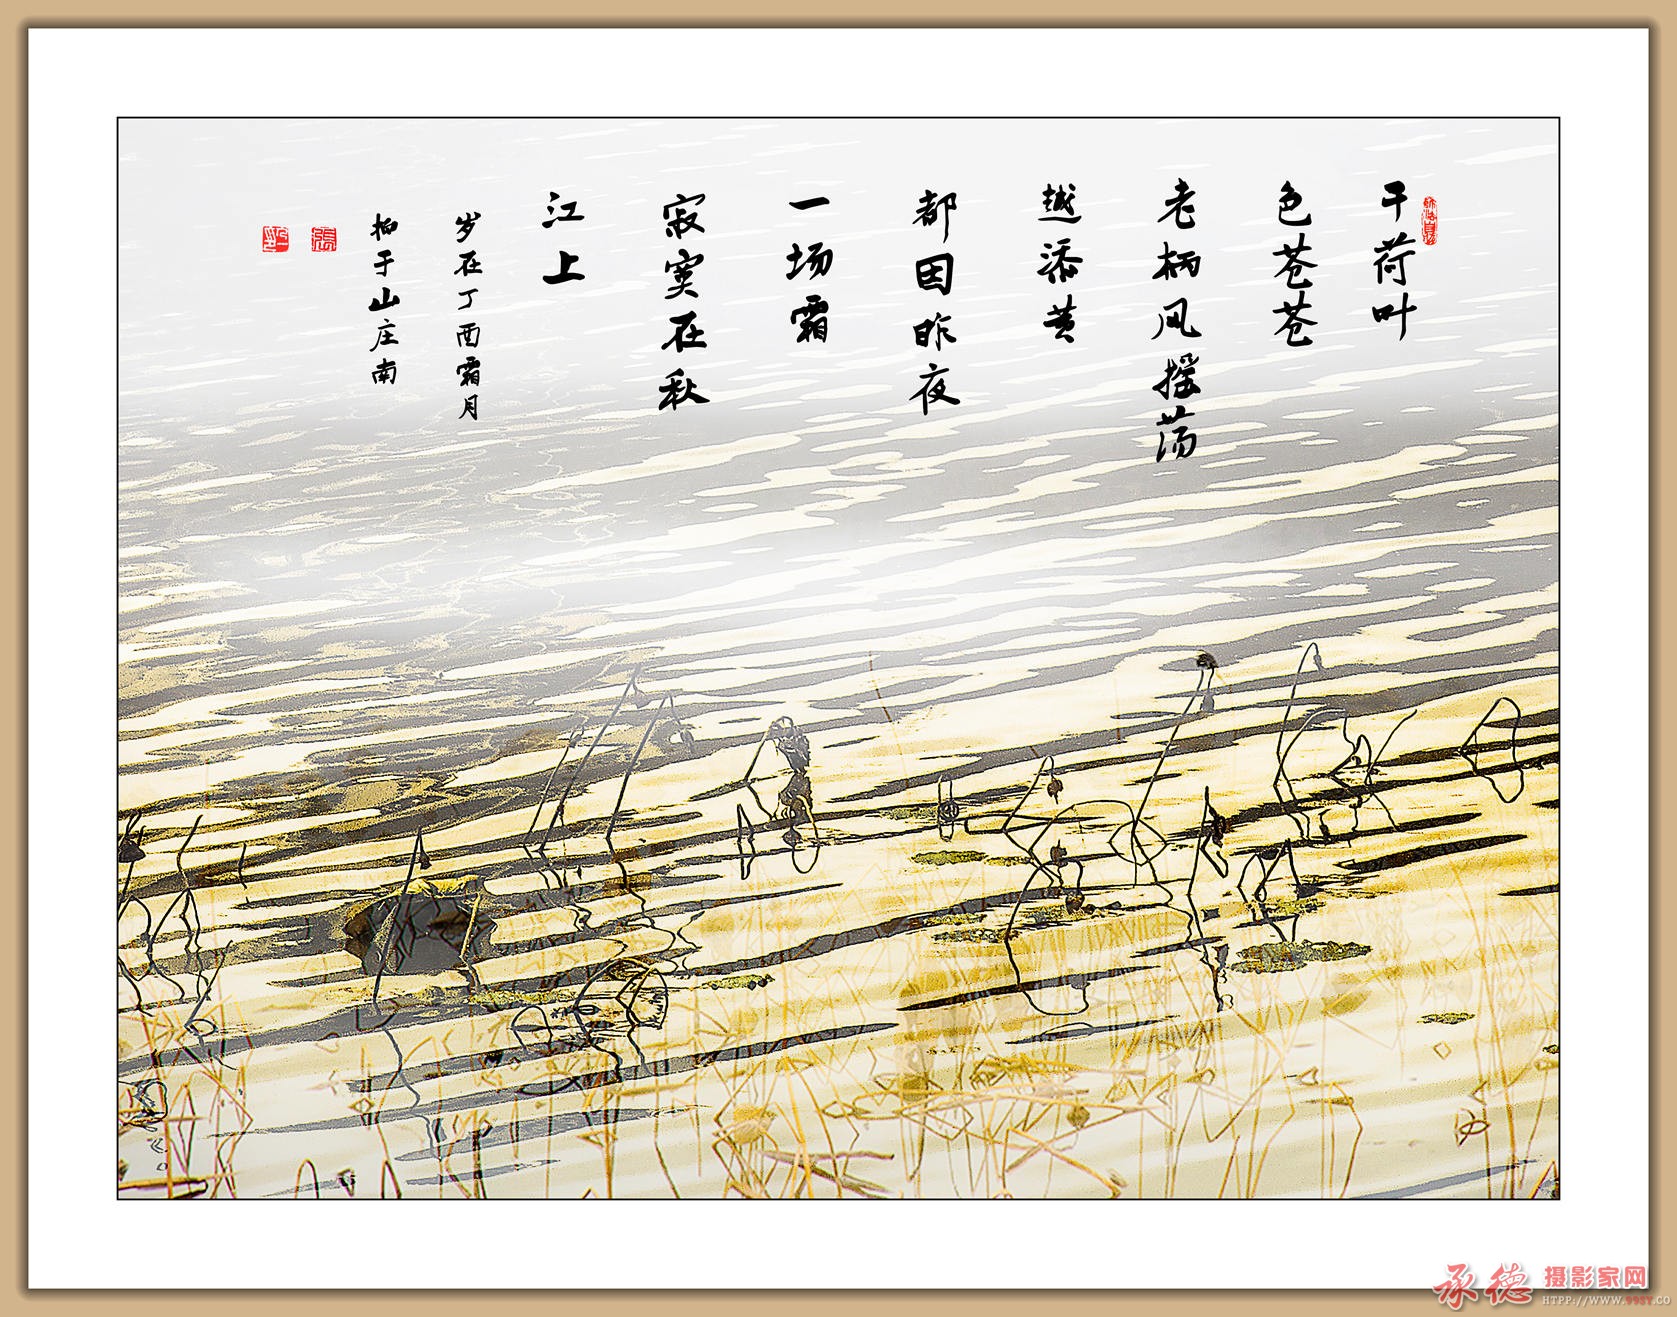 干荷叶
色苍苍
老柄风摇荡
越添黄
都因昨夜
一场霜
寂寞在秋
江上
岁在丁酉霜月
拍于山庄南
承德摄影家网
HTPP://WWW.99SY.CO